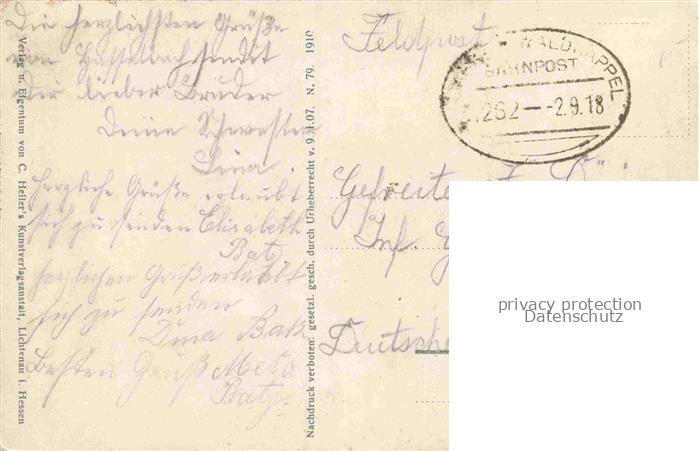 Die herzlichsten Grüße
von Hasselbach sendet
dir lieber Bruder
Deine Schwester
Lina.
Herzliche Grüße erlaubt
sich zu senden Elisabeth
Batz
herzlichen Gruß erlaubt
sich zu senden
Dina Batz
Besten Gruß Meta
Batz.
Verlag u. Eigentum von C. Heller's Kunstverlagsanstalt, Lichtenau i. Hessen
Nachdruck verboten: gesetzl. gesch. durch Urheberrecht v. 9. 1. 07. N. 79. 1910
Feldpost
WALDKAPPEL
BAHNPOST
262 — 2.9.18
Gefreiter
Inf.
Deutsche
privacy protection
Datenschutz